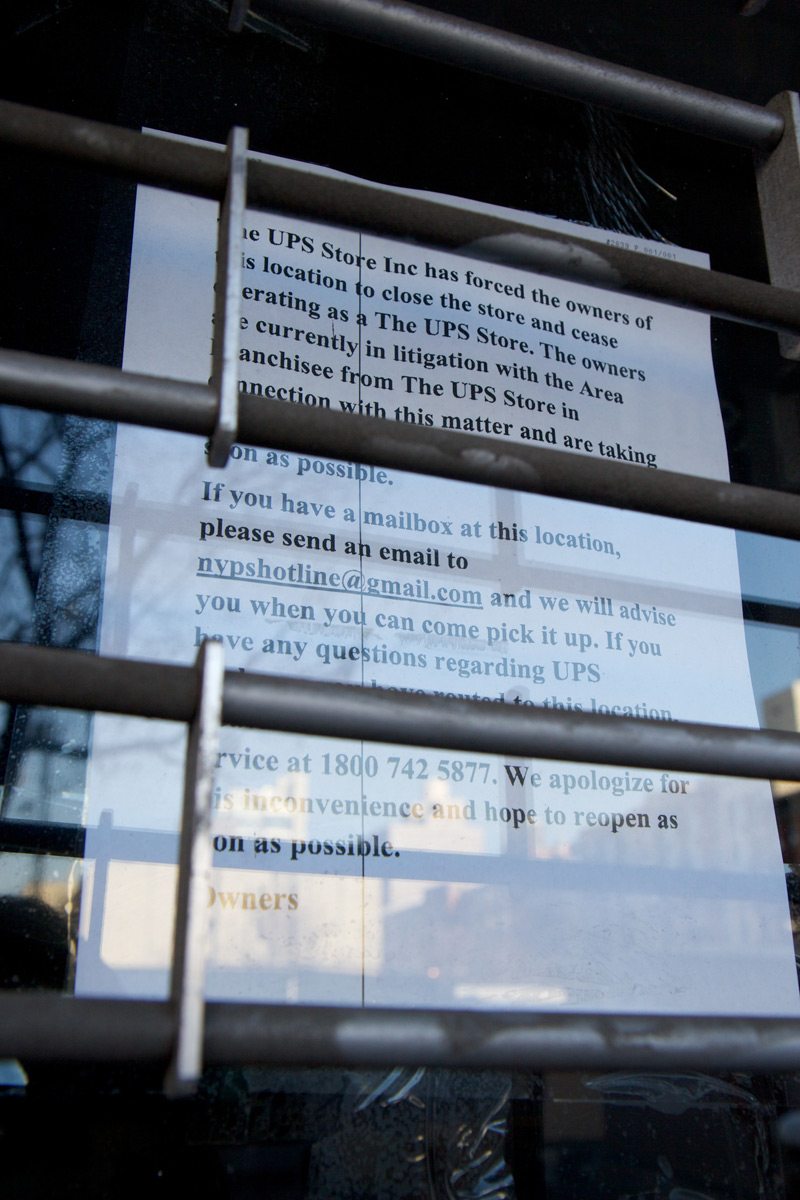 #2839 P.001/001
he UPS Store Inc has forced the owners of
is location to close the store and cease
erating as a The UPS Store. The owners
e currently in litigation with the Area
anchisee from The UPS Store in
nnection with this matter and are taking
on as possible.
If you have a mailbox at this location,
please send an email to
nypshotline@gmail.com and we will advise
you when you can come pick it up. If you
have any questions regarding UPS
have routed to this location,
rvice at 1800 742 5877. We apologize for
is inconvenience and hope to reopen as
on as possible.
Owners